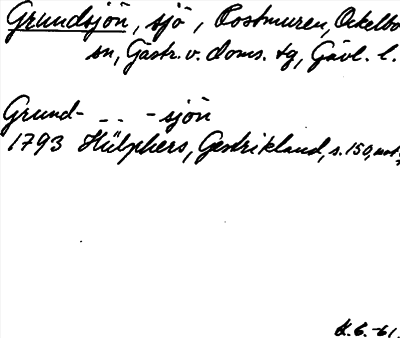 Grundsjön, sjö, Rostmuren, Ockelbo
sn, Gästr. v. doms. tg, Gävl. l.
Grund- - . . - sjön
1793 Hülphers, Gestrikland, s. 150, not.
K.G. -61.